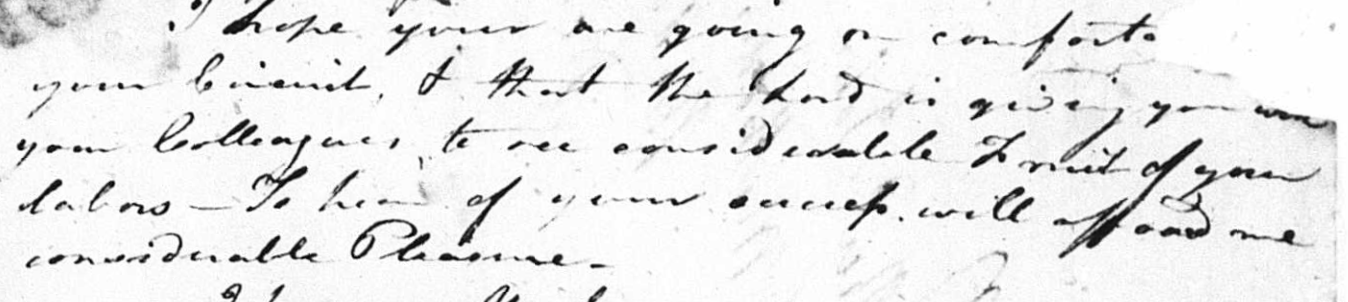 I hope your are going on comforta
your Circuit, & that the Lord is giving you
your Colleagues to see considerable Fruit of your
labors – To hear of your success will afford me
considerable Pleasure –